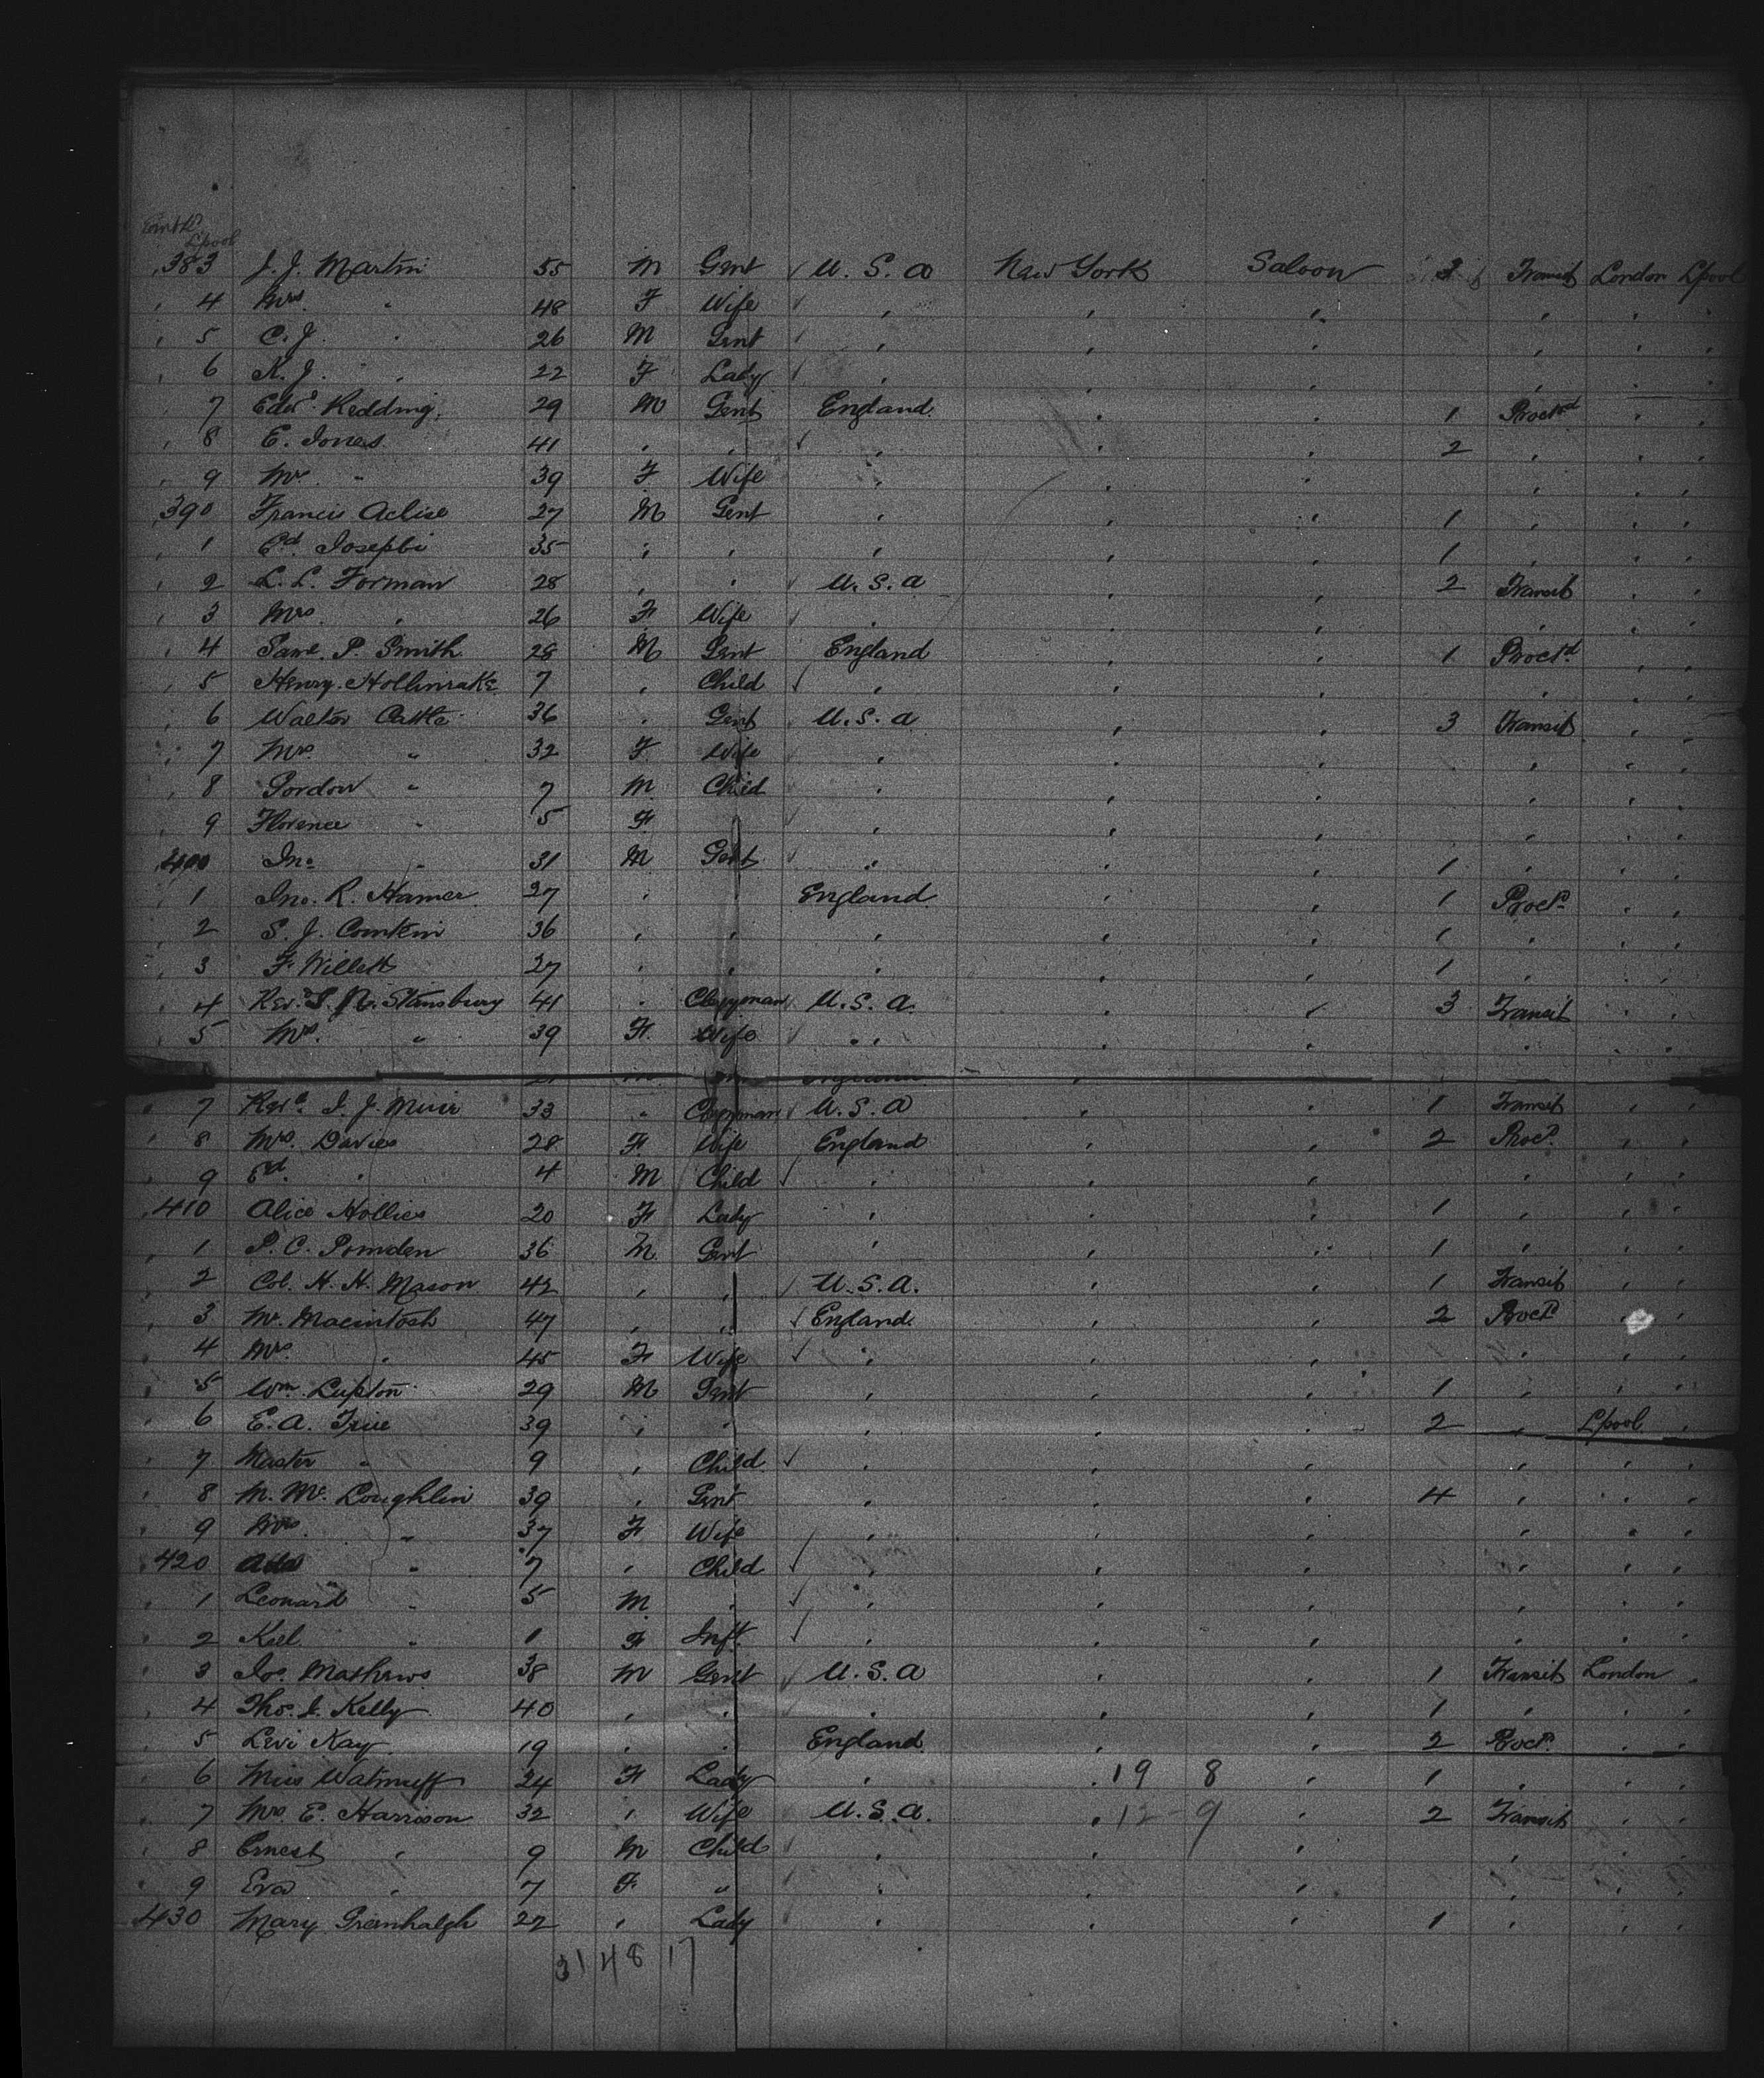 Lpool
383 J. J. Martin 55 M Gent √ U. S. A New York Saloon 3 Transit London Lpool
4 Mrs " 48 F Wife √ " " " " " "
5 C. J. " 26 M Gent √ " " " " " "
6 K. J. " 22 F Lady √ " " " " " "
7 Edwd. Redding 29 M Gent England " " 1 Proctd " "
8 E. Jones 41 " " √ " " " 2 " " "
9 Mrs " 39 F Wife " " " " " "
390 Francis 27 M Gent " " " 1 " " "
1 Ed. Josephi 35 " " " " " 1 " " "
2 L. L. Forman 28 " " √ U. S. A " " 2 Transit " "
3 Mrs " 26 F Wife √ " " " " " "
4 Saml. P. Smith 28 M Gent England " " 1 Proctd " "
5 Henry Hollinrake 7 " Child √ " " " " " "
6 Walter Cattle 36 " Gent √ U. S. A " " 3 Transit " "
7 Mrs " 32 F Wife √ " " " " " "
8 Gordon " 7 M Child √ " " " " " "
9 Florence " 5 F √ " " " " " "
400 Jno " 31 M Gent √ " " " 1 " " "
1 Jno. R. Hamer 27 " " England " " 1 Proctd " "
2 S. J. 36 " " " " " 1 " " "
3 F. Willett 27 " " " " " 1 " " "
4 Rev. Stansbury 41 " Clergyman √ U. S. A. " " 3 Transit " "
5 Mrs. " 39 F. Wife √ " " " " " "
7 Revd. J. J. Muir 33 " Clergyman √ U. S. A " " 1 Transit " "
8 Mrs. Davies 28 F Wife England " " 2 Procd " "
9 Ed. " 4 M Child √ " " " " " "
410 Alice Hollies 20 F Lady " " " 1 " " "
1 P. C. Pomden 36 M. Gent " " " 1 " " "
2 Col. H. H. Mason 42 " " √ U. S. A. " " 1 Transit " "
3 Mr. Macintosh 47 " " √ England " " 2 Proctd " "
4 Mrs. " 45 F Wife √ " " " " " "
5 Wm. Lupton 29 M Gent " " " 1 " " "
6 E. A. 39 " " " " " 2 " Lpool "
7 Master " 9 " Child √ " " " " " "
8 M. Mc. Loughlin 39 " Gent " " " 4 " " "
9 Mrs " 37 F Wife √ " " " " " "
420 Ada " 7 " Child √ " " " " " "
1 Leonard " 5 M. " √ " " " " " "
2 " 1 F Inft. √ " " " " " "
3 Jos. Mathews 38 M Gent √ U. S. A " " 1 Transit London "
4 Thos. J. Kelly 40 " " √ " " " 1 " " "
5 Levi Kay 19 " " England " " 2 Proctd " "
6 Miss Watmuff 24 F Lady " " 19 8 " 1 " " "
7 Mrs. E. Harrison 32 " Wife U. S. A. " 12 9 " 2 Transit " "
8 Ernest " 9 M Child √ " " " " " "
9 Eva " 7 F " √ " " " " " "
430 Mary Greenhalgh 22 " Lady √ " " " 1 " " "
31 48 17